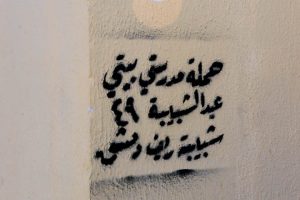 حملة مدرستي بيتي
عيد الشبيبة ٤٩
شبيبة ريف دمشق